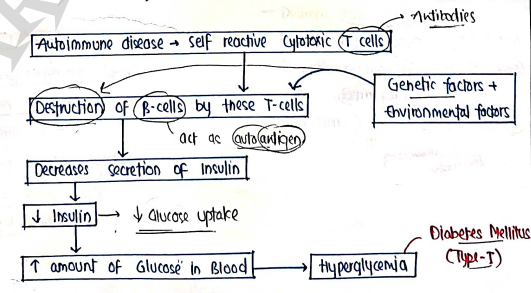 Antibodies
Autoimmune disease → self reactive Cytotoxic T cells
Genetic factors +
Environmental factors
Destruction of β-cells by these T-cells
act as autoantigen
Decreases secretion of Insulin
↓ Insulin → ↓ Glucose uptake
Diabetes Mellitus
(Type-I)
↑ amount of Glucose in Blood
Hyperglycemia